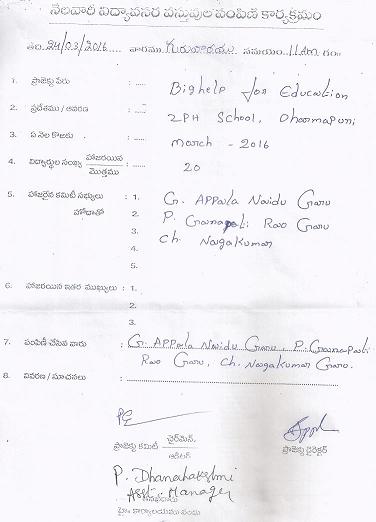 నెలవారీ విద్యావసర వస్తువుల పంపిణీ కార్యక్రమం
తేది: 24/03/2016 వారము గురువారము సమయం: 11AM గం॥
1. ప్రాజెక్టు పేరు : Bighelp for Education
2. ప్రదేశము / ఆవరణ : ZPH School, Dharmapuri
3. ఏ నెల కొఱకు : March - 2016
4. విద్యార్థుల సంఖ్య హాజరయిన / మొత్తము : 20
5. హాజరైన కమిటీ సభ్యులు : 1. G. Appala Naidu Garu
హోదాతో 2. P. Ganapati Rao Garu
3. Ch. Nagakumar
4.
5.
6. హాజరయిన ఇతర ముఖ్యులు : 1.
2.
3.
7. పంపిణీ చేసిన వారు : G. Appala Naidu Garu, P. Ganapati
Rao Garu, Ch. Nagakumar Garu.
8. వివరణ / సూచనలు :
ప్రాజెక్టు కమిటీ ఛైర్‌మన్, / ఆడిటర్ ప్రాజెక్టు డైరెక్టర్
P. Dhanalakshmi
Asst. Manager
హైం కార్యాలయము